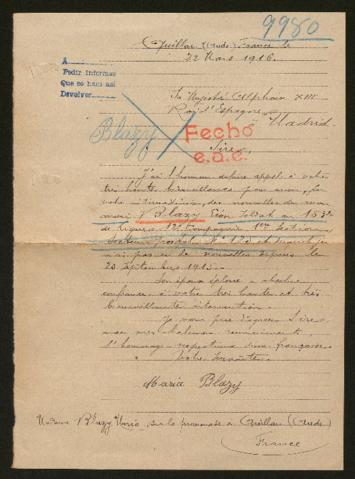 9980
Quillan (Aude) France le
22 Mars 1916.
A
Pedir informes
Que se hará así
Devolver
Sa Majesté Alphonse XIII
Roi d'Espagne
à Madrid.
Blazy
Fecho
e.a.e.
Sire,
J'ai l'honneur de faire appel à votre
très haute bienveillance pour avoir, par
votre des nouvelles de mon
mari Blazy Léon soldat au 153e
de ligne, Compagnie 1ère Section
secteur postal N° 125 et duquel je
n'ai pas eu de nouvelles depuis le
23 septembre 1915.
Son épouse éplorée a absolue
confiance à votre très haute et très
bienveillante intervention.
Je vous prie d'agréer Sire
avec mes
l'hommage respectueux d'une française.
Votre servante.
Maria Blazy
Madame Blazy Maria sur la promenade à Quillan (Aude)
France